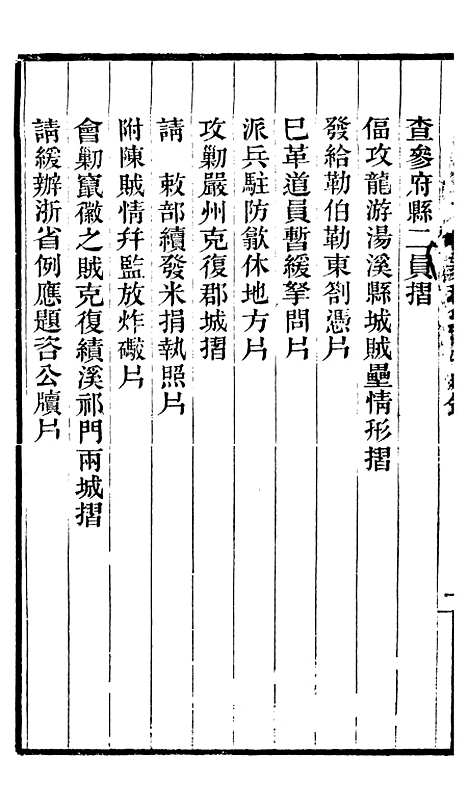 查參府縣二員摺
偪攻龍游湯溪縣城賊壘情形摺
發給勒伯勒東劄憑片
已革道員暫緩拏問片
派兵駐防歙休地方片
攻勦嚴州克復郡城摺
請　敕部續發米捐執照片
附陳賊情幷監放炸礮片
會勦竄徽之賊克復績溪祁門兩城摺
請緩辦浙省例應題咨公牘片